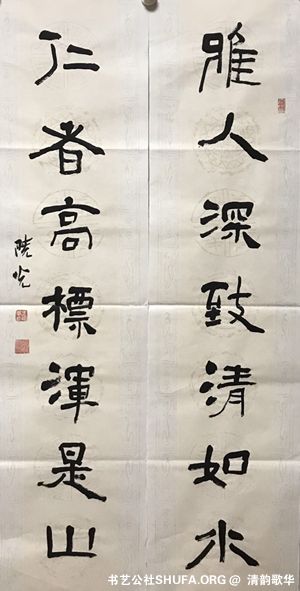 雅人深致清如水
仁者高標渾是山
書艺公社SHUFA.ORG @ 清韵歌华